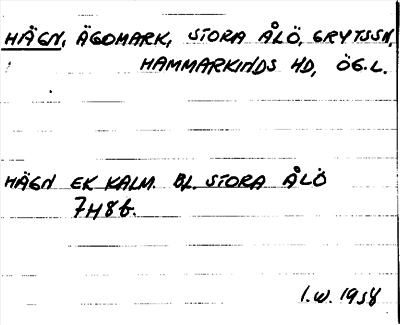 HÄGN, ÄGOMARK, STORA ÅLÖ, GRYTSSN,
HAMMARKINDS HD, ÖG.L.
HÄGN EK KALM. BL. STORA ÅLÖ
7H8f.
I.W. 1958